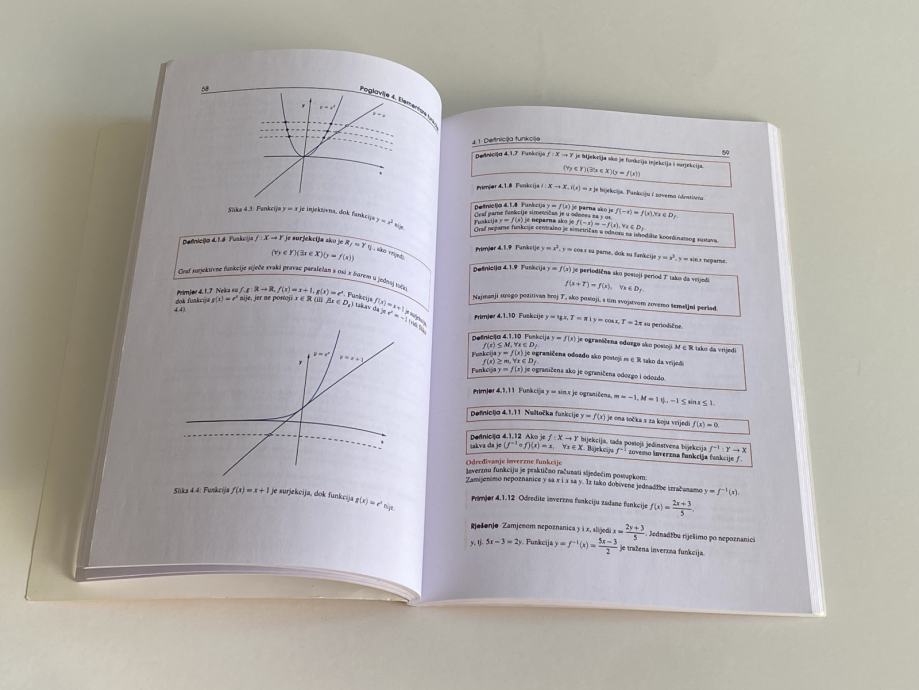 58
Poglavlje 4. Elementarne funkcije
y
y = x²
y = x
x
Slika 4.3: Funkcija y = x je injektivna, dok funkcija y = x² nije.
Definicija 4.1.6 Funkcija f : X → Y je surjekcija ako je R_f = Y tj., ako vrijedi
(∀y ∈ Y)(∃x ∈ X)(y = f(x))
Graf surjektivne funkcije siječe svaki pravac paralelan s osi x barem u jednoj točki.
Primjer 4.1.7 Neka su f, g : ℝ → ℝ, f(x) = x+1, g(x) = eˣ. Funkcija f(x) = x+1 je surjekcija,
dok funkcija g(x) = eˣ nije, jer ne postoji x ∈ ℝ (ili ∄x ∈ D_g) takav da je eˣ = −1 (vidi Sliku
4.4).
y
y = eˣ
y = x+1
x
Slika 4.4: Funkcija f(x) = x+1 je surjekcija, dok funkcija g(x) = eˣ nije.
4.1 Definicija funkcije
59
Definicija 4.1.7 Funkcija f : X → Y je bijekcija ako je funkcija injekcija i surjekcija.
(∀y ∈ Y)(∃!x ∈ X)(y = f(x))
Primjer 4.1.8 Funkcija i : X → X, i(x) = x je bijekcija. Funkciju i zovemo identiteta.
Definicija 4.1.8 Funkcija y = f(x) je parna ako je f(−x) = f(x), ∀x ∈ D_f.
Graf parne funkcije simetričan je u odnosu na y os.
Funkcija y = f(x) je neparna ako je f(−x) = −f(x), ∀x ∈ D_f.
Graf neparne funkcije centralno je simetričan u odnosu na ishodište koordinatnog sustava.
Primjer 4.1.9 Funkcije y = x², y = cos x su parne, dok su funkcije y = x³, y = sin x neparne.
Definicija 4.1.9 Funkcija y = f(x) je periodična ako postoji period T tako da vrijedi
f(x+T) = f(x), ∀x ∈ D_f.
Najmanji strogo pozitivan broj T, ako postoji, s tim svojstvom zovemo temeljni period.
Primjer 4.1.10 Funkcije y = tg x, T = π i y = cos x, T = 2π su periodične.
Definicija 4.1.10 Funkcija y = f(x) je ograničena odozgo ako postoji M ∈ ℝ tako da vrijedi
f(x) ≤ M, ∀x ∈ D_f.
Funkcija y = f(x) je ograničena odozdo ako postoji m ∈ ℝ tako da vrijedi
f(x) ≥ m, ∀x ∈ D_f.
Funkcija y = f(x) je ograničena ako je ograničena odozgo i odozdo.
Primjer 4.1.11 Funkcija y = sin x je ograničena, m = −1, M = 1 tj., −1 ≤ sin x ≤ 1.
Definicija 4.1.11 Nultočka funkcije y = f(x) je ona točka x za koju vrijedi f(x) = 0.
Definicija 4.1.12 Ako je f : X → Y bijekcija, tada postoji jedinstvena bijekcija f⁻¹ : Y → X
takva da je (f⁻¹ ∘ f)(x) = x, ∀x ∈ X. Bijekciju f⁻¹ zovemo inverzna funkcija funkcije f.
Određivanje inverzne funkcije
Inverznu funkciju je praktično računati sljedećim postupkom:
Zamijenimo nepoznanice y sa x i x sa y. Iz tako dobivene jednadžbe izračunamo y = f⁻¹(x).
Primjer 4.1.12 Odredite inverznu funkciju zadane funkcije f(x) = (2x+3)/5.
Rješenje Zamjenom nepoznanica y i x, slijedi x = (2y+3)/5. Jednadžbu riješimo po nepoznanici
y, tj. 5x − 3 = 2y. Funkcija y = f⁻¹(x) = (5x−3)/2 je tražena inverzna funkcija.